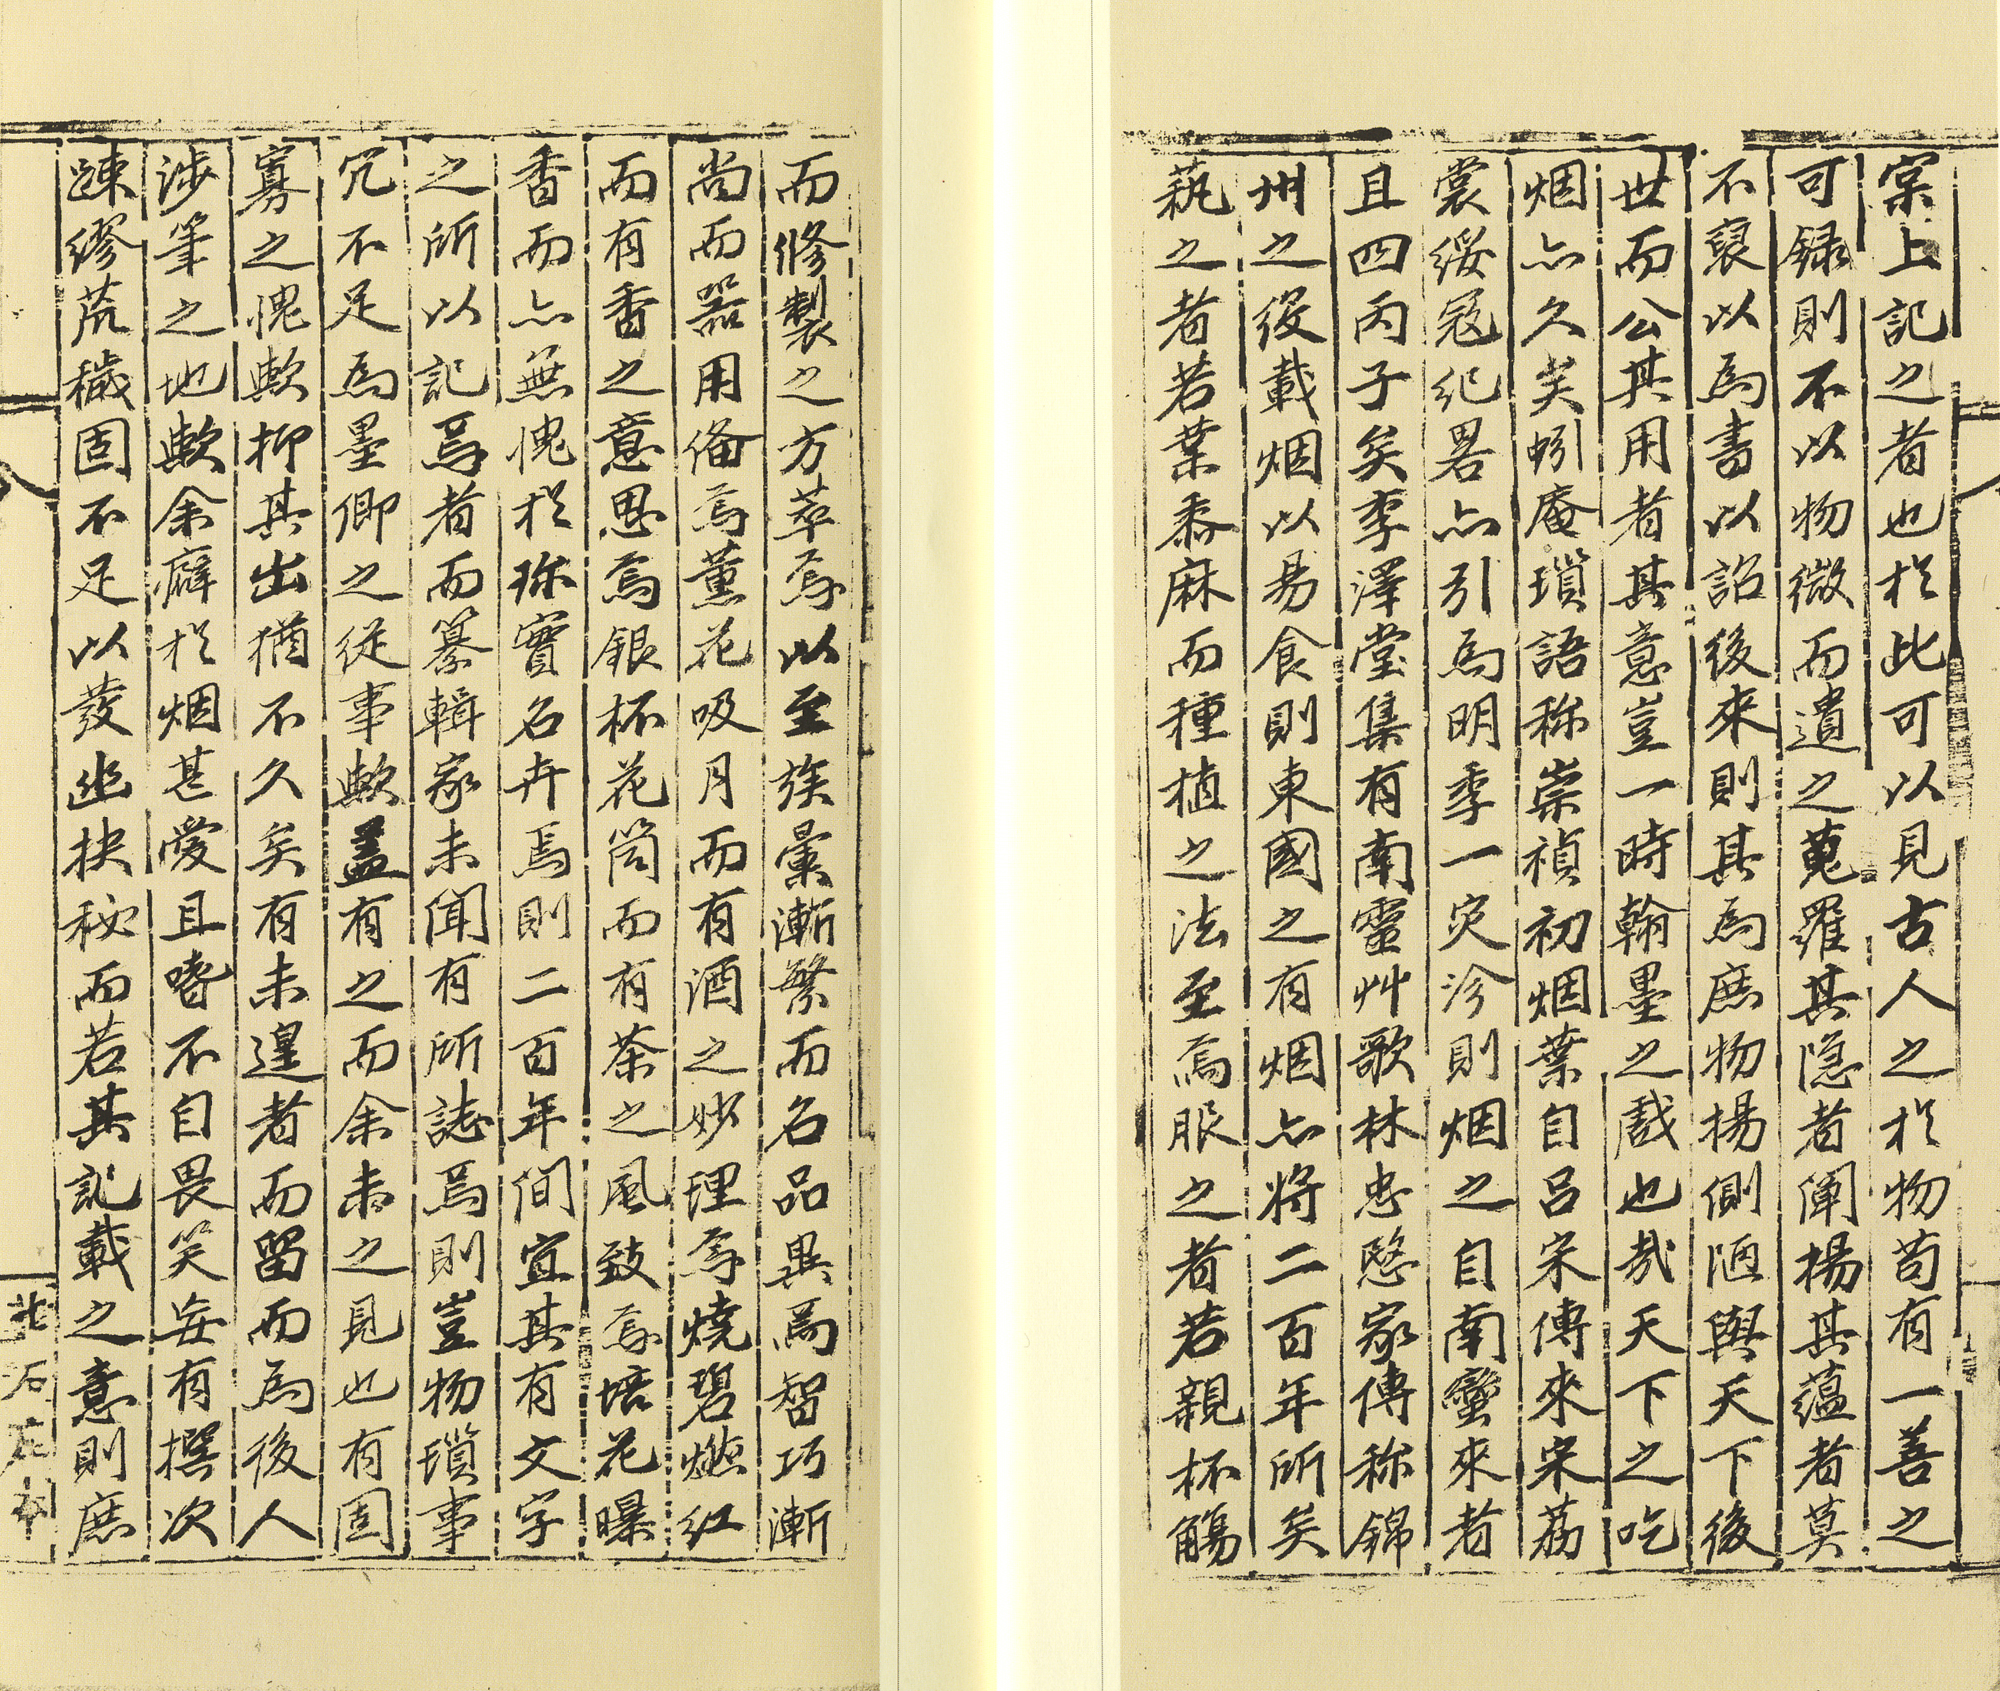 窠上記之者也於此可以見古人之於物苟有一善之
可録則不以物微而遺之蒐羅其隐者闡揚其蘊者莫
不裒以爲書以詔後來則其爲庶物揚側陋與天下後
世而公其用者其意豈一時翰墨之戲也哉天下之吃
烟亦久矣蚓庵瑣語称崇禎初烟葉自呂宋傳來宋荔
裳綏寇紀畧亦引爲明季一灾沴則烟之自南蠻來者
且四丙子矣李澤堂集有南靈艸歌林忠愍家傳称錦
州之役載烟以易食則東國之有烟亦將二百年所矣
蓺之者若葉黍麻而種植之法至焉服之者若親杯觴
而修製之方萃焉以至族彙漸繁而名品異焉智巧漸
尚而器用備焉薰花吸月而有酒之妙理焉燒碧燃紅
而有香之意思焉銀杯花筒而有茶之風致焉培花曝
香而亦無愧於珎實名卉焉則二百年間宜其有文字
之所以記焉者而纂輯家未聞有所誌焉則豈物瑣事
冗不足爲墨卿之從事歟盖有之而余未之見也有固
寡之愧歟抑其出猶不久矣有未遑者而留而爲後人
涉筆之地歟余癖於烟甚愛且嗜不自畏笑妄有撰次
踈繆荒穢固不足以發幽抉秘而若其記載之意則庶